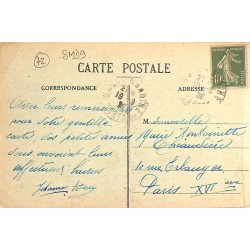 72
SM09
CARTE POSTALE
CORRESPONDANCE
ADRESSE
Avec leurs remerciements
pour votre gentille
carte, vos petites amies
vous envoient leurs
affectueux baisers
Mademoiselle
Marie Antoinette
Chaudière
10 rue Erlanger
Paris XVI eme